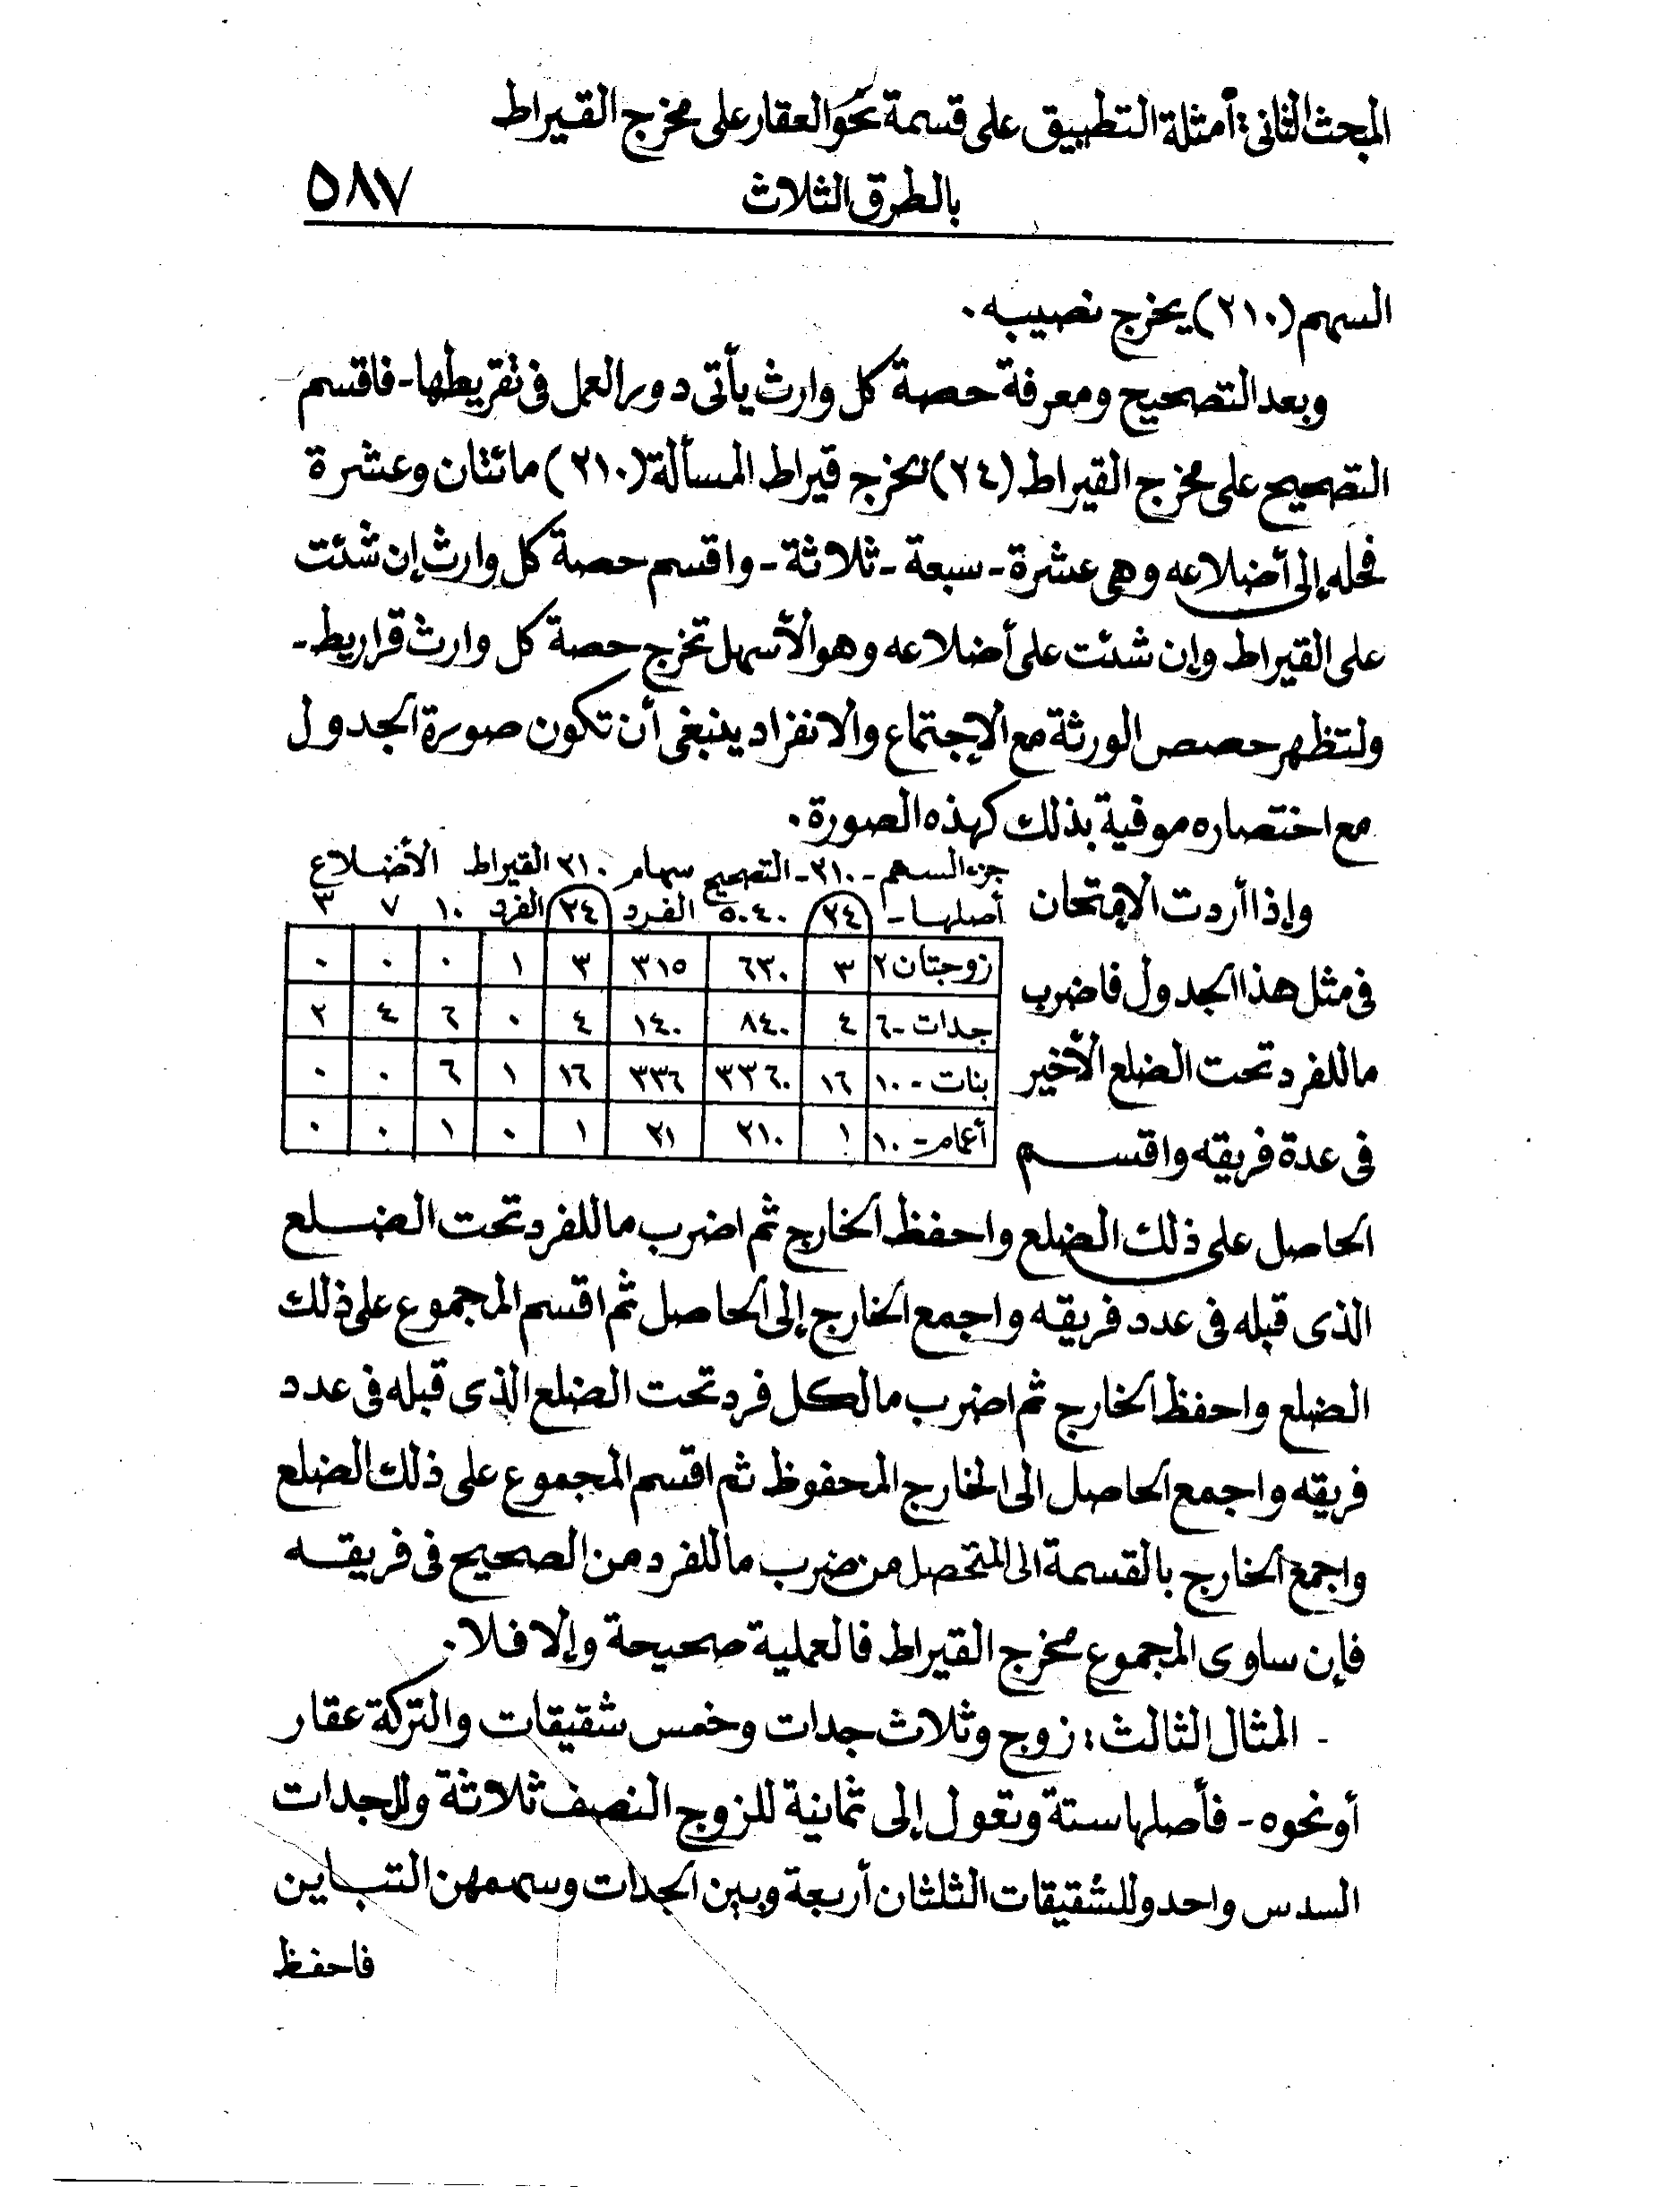 المبحث الثاني: أمثلة التطبيق على قسمة نحو العقار على مخرج القيراط
بالطرق الثلاث
٥٨٧
السهم (٢١٠) يخرج نصيبه.
وبعد التصحيح ومعرفة حصة كل وارث يأتى دور العمل فى تقريطها - فاقسم
التصحيح على مخرج القيراط (٢٤) يخرج قيراط المسألة (٢١٠) مائتان وعشرة
فحله إلى أضلاعه وهى عشرة - سبعة - ثلاثة - واقسم حصة كل وارث إن شئت
على القيراط وإن شئت على أضلاعه وهو الأسهل تخرج حصة كل وارث قراريط -
ولتظهر حصص الورثة مع الإجتماع والانفراد ينبغى أن تكون صورة الجدول
مع اختصاره موفية بذلك كهذه الصورة.
جزء السهم - ٢١٠ - التصحيح سهام ٢١٠ القيراط الأضلاع
أصلها - ٢٤ ٥٠٤٠ الفرد ٢٤ الفرد ١٠ ٧ ٣
زوجتان ٢ ٣ ٦٣٠ ٣١٥ ٣ ١ ٠ ٠ ٠
جدات - ٦ ٤ ٨٤٠ ١٤٠ ٤ ٠ ٦ ٤ ٢
بنات - ١٠ ١٦ ٣٣٦٠ ٣٣٦ ١٦ ١ ٦ ٠ ٠
أعمام - ١٠ ١ ٢١٠ ٢١ ١ ٠ ١ ٠ ٠
وإذا أردت الإمتحان
فى مثل هذا الجدول فاضرب
ما للفرد تحت الضلع الأخير
فى عدة فريقه واقسم
الحاصل على ذلك الضلع واحفظ الخارج ثم اضرب ما للفرد تحت الضلع
الذى قبله فى عدد فريقه واجمع الخارج إلى الحاصل ثم اقسم المجموع على ذلك
الضلع واحفظ الخارج ثم اضرب ما لكل فرد تحت الضلع الذى قبله فى عدد
فريقه واجمع الحاصل الى الخارج المحفوظ ثم اقسم المجموع على ذلك الضلع
واجمع الخارج بالقسمة الى المتحصل من ضرب ما للفرد من الصحيح فى فريقه
فإن ساوى المجموع مخرج القيراط فالعملية صحيحة وإلا فلا.
- المثال الثالث: زوج وثلاث جدات وخمس شقيقات والتركة عقار
أو نحوه - فأصلها ستة وتعول إلى ثمانية للزوج النصف ثلاثة وللجدات
السدس واحد وللشقيقات الثلثان أربعة وبين الجدات وسهمهن التباين
فاحفظ